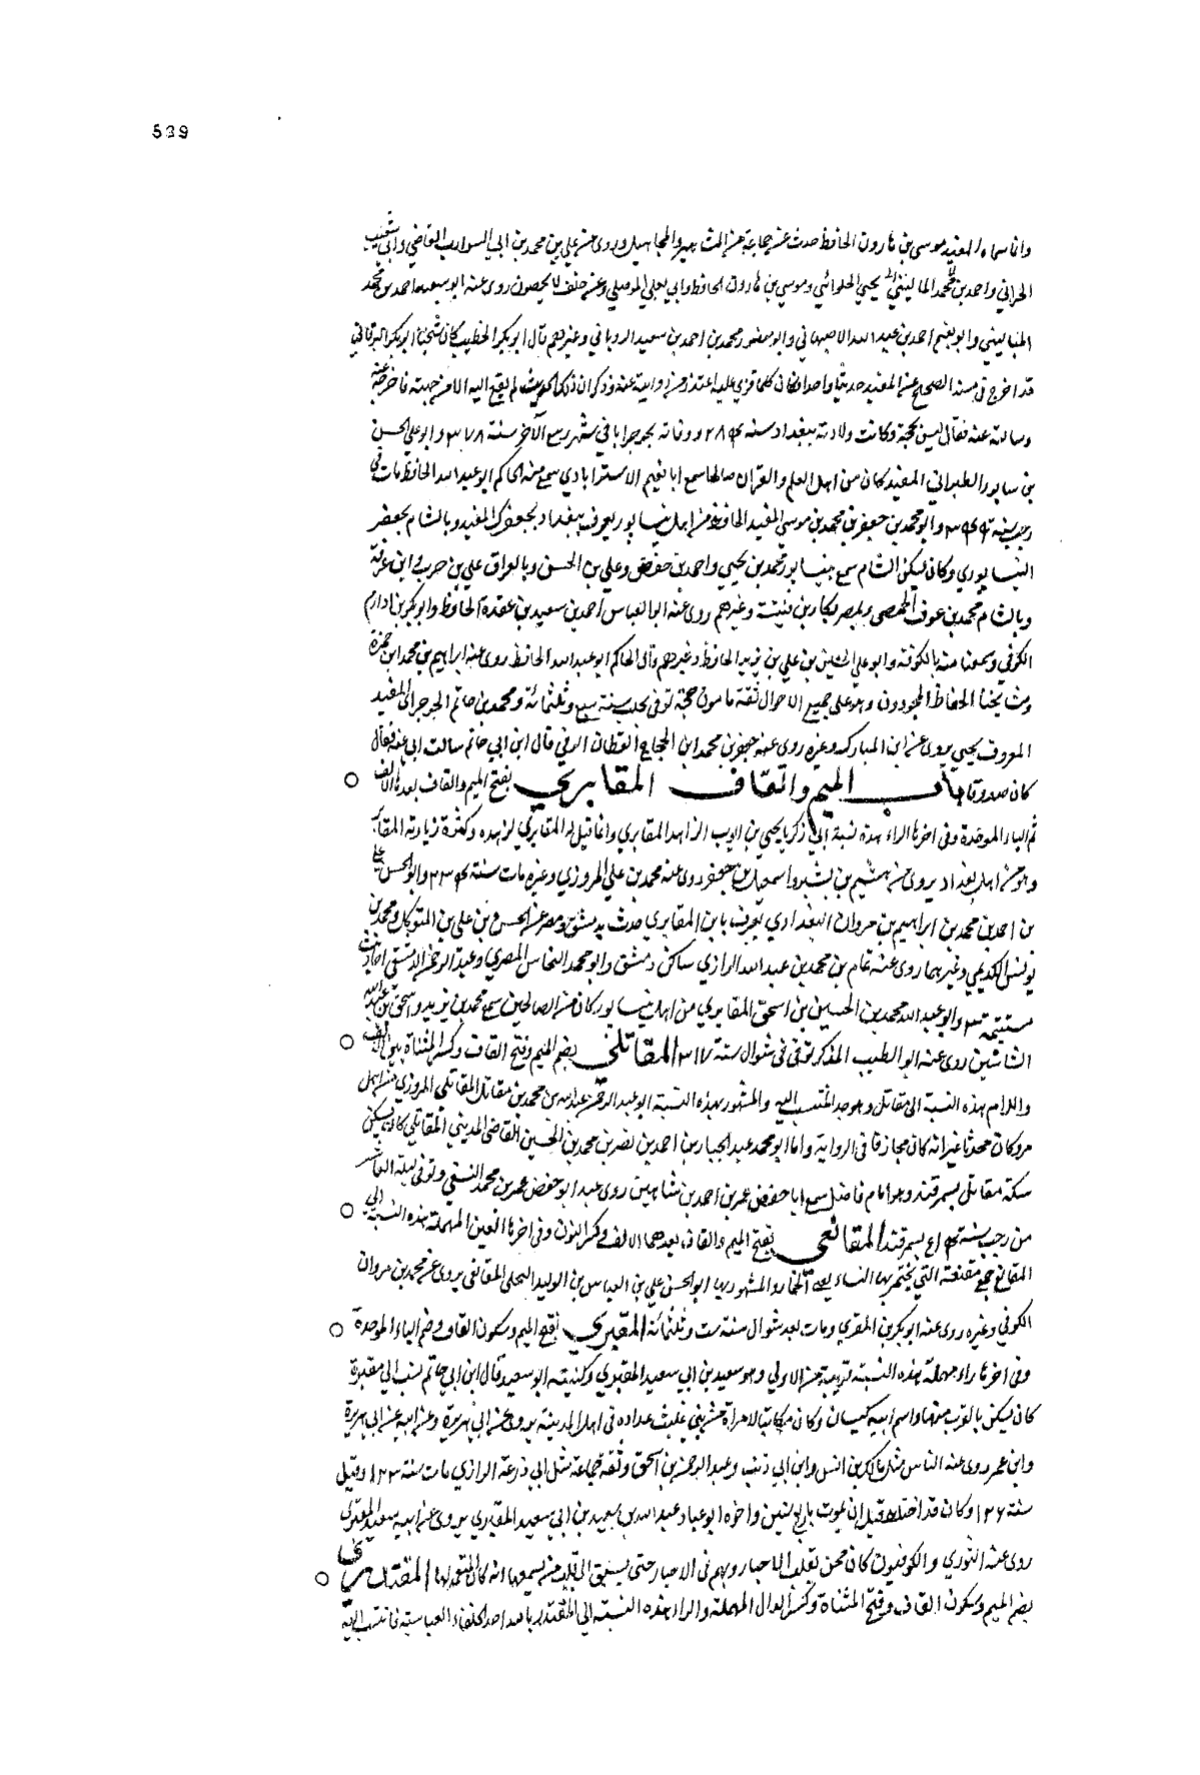 539
وانا سماه المفيد موسى بن هارون الحافظ حدث عن جماعة من المشاهير والمجاهيل وروى عن علي بن محمد بن ابي الشوارب القاضي وابي شعيب
الحراني واحمد بن محمد يحيى الحلواني وموسى بن هارون الحافظ وابي يعلى الموصلي وعن خلف لا يحصون روى عنه ابو سعد احمد بن محمد
الماليني وابو نعيم احمد بن عبد الله الاصبهاني وابو منصور محمد بن احمد بن سعيد الروياني وغيرهم قال ابو بكر الخطيب كان شيخنا ابو بكر البرقاني
قد اخرج في مسند الصحيح عن المفيد حديثا واحدا فكان كلما قرئ عليه اعتذر من روايته عنه وذكر ان ذلك الحديث لم يقع اليه الا من جهته فاخرجه عنه
وسالته عنه فقال ليس بحجة وكانت ولادته ببغداد سنة ٢٨٤ ووفاته بجرجرايا في شهر ربيع الآخر سنة ٣٧٨ وابو علي الحسن
بن سابور الطبراني المفيد كان من اهل العلم والقرآن صالحا سمع ابا نعيم الاسترابادي سمع منه الحاكم ابو عبد الله الحافظ مات في
رجب سنة وابو محمد بن جعفر بن محمد بن موسى المفيد الحافظ من اهل نيسابور يعرف ببغداد بجعفرك المفيد وبالشام بجعفر
النيسابوري وكان يسكن الشام سمع بنيسابور محمد بن يحيى واحمد بن حفص وعلي بن الحسن وبالعراق علي بن حرب وابن عرفة
وبالشام محمد بن عوف الحمصي وبمصر بكار بن قتيبة وغيرهم روى عنه ابو العباس احمد بن سعيد بن عقدة الحافظ وابو بكر بن ادارم
الكوفي وسمعنا منه بالكوفة وابو علي الحسين بن علي بن يزيد الحافظ وغيرهم وقال الحاكم ابو عبد الله الحافظ روى عنه ابراهيم بن محمد ابن حمزة
ومشايخنا الحفاظ المجودون وهو على جميع الاحوال ثقة مامون حجة توفي بحلب سنة سبع وثلثمائة ومحمد بن حاتم الجرجرائي المفيد
المعروف بحيى يروي عن ابن المبارك وغيره روى عنه جعفر بن محمد ابن الحجاج القطان الرقي قال ابن ابي حاتم سالت ابي عنه فقال
كان صدوقا باب الميم والقاف المقابري بفتح الميم والقاف بعدها الالف ○
ثم الباء الموحدة وفي اخرها الراء هذه نسبة الى زكريا يحيى بن ايوب الزاهد المقابري وانما قيل له المقابري لزهده وكثرة زيارته المقابر
وهو من اهل بغداد يروي عن هشيم بن بشير واسمعيل بن جعفر روى عنه محمد بن علي المروزي وغيره مات سنة ٢٣٤ وابو الحسن علي
بن احمد بن محمد بن ابراهيم بن مروان البغدادي يعرف بابن المقابري حدث بدمشق ومصر عن الحسن بن علي بن المتوكل ومحمد بن
يونس الكديمي وغيرهما روى عنه تمام بن محمد بن عبد الله الرازي ساكن دمشق وابو محمد النحاس المصري وعبد الرحمن الدمشقي احاديث
مستقيمة وابو عبد الله محمد بن الحسين بن اسحق المقابري من اهل نيسابور كان من الصالحين سمع محمد بن يزيد واسحق بن عبد الله
الشاشيين روى عنه ابو الطيب المذكر توفي في شوال سنة ٣١٧ المقاتلي بضم الميم وفتح القاف وكسر المثناة بعد الالف ○
واللام هذه النسبة الى مقاتل وهو جد المنتسب اليه والمشهور بهذه النسبة ابو عبد الرحمن عبد الله بن محمد بن مقاتل المقاتلي المروزي من اهل
مرو كان محدثا غير انه كان مجازفا في الرواية واما ابو محمد عبد الجبار بن احمد بن نصر بن محمد بن الحسين القاضي المديني المقاتلي كان يسكن
سكة مقاتل بسمرقند وهو امام فاضل سمع ابا حفص عمر بن احمد بن شاهين روى عنه ابو حفص عمر بن محمد النسفي وتوفي ليلة العاشر
من رجب سنة بسمرقند المقانعي بفتح الميم والقاف بعدهما الالف وكسر النون وفي اخرها العين المهملة هذه النسبة الى ○
المقانع جمع مقنعة التي يختمر بها النساء يعني الخمار والمشهور بها ابو الحسن علي بن العباس بن الوليد البجلي المقانعي يروي عن محمد بن مروان
الكوفي وغيره روى عنه ابو بكر بن المقري ومات بعد شوال سنة ست وثلثمائة المقبري بفتح الميم وسكون القاف وضم الباء الموحدة ○
وفي اخرها راء مهملة هذه النسبة قريبة من الاولى وهو سعيد بن ابي سعيد المقبري وكنيته ابو سعيد قال ابن ابي حاتم نسب الى مقبرة
كان يسكن بالقرب منها واسم ابيه كيسان وكان مكاتبا لامرأة من بني ليث عداده في اهل المدينة يروي عن ابي هريرة وعن ابيه عن ابي هريرة
وابن عمر روى عنه الناس مثل مالك بن انس وابن ابي ذئب وعبد الرحمن بن اسحق وثقه جماعة مثل ابي زرعة الرازي مات سنة ١٢٣ وقيل
سنة ١٢٦ وكان قد اختلط قبل ان يموت باربع سنين واخوه ابو عباد عبد الله بن سعيد بن ابي سعيد المقبري يروي عن ابيه سعيد المقبري
روى عنه الثوري والكوفيون كان ممن يقلب الاخبار ويهم في الاخبار حتى يسبق الى قلب من يسمعها انه كان المتعمد لها المقتدري ○
بضم الميم وسكون القاف وفتح المثناة وكسر الدال المهملة والراء هذه النسبة الى المقتدر بالله احد الخلفاء العباسية فانتسب اليه